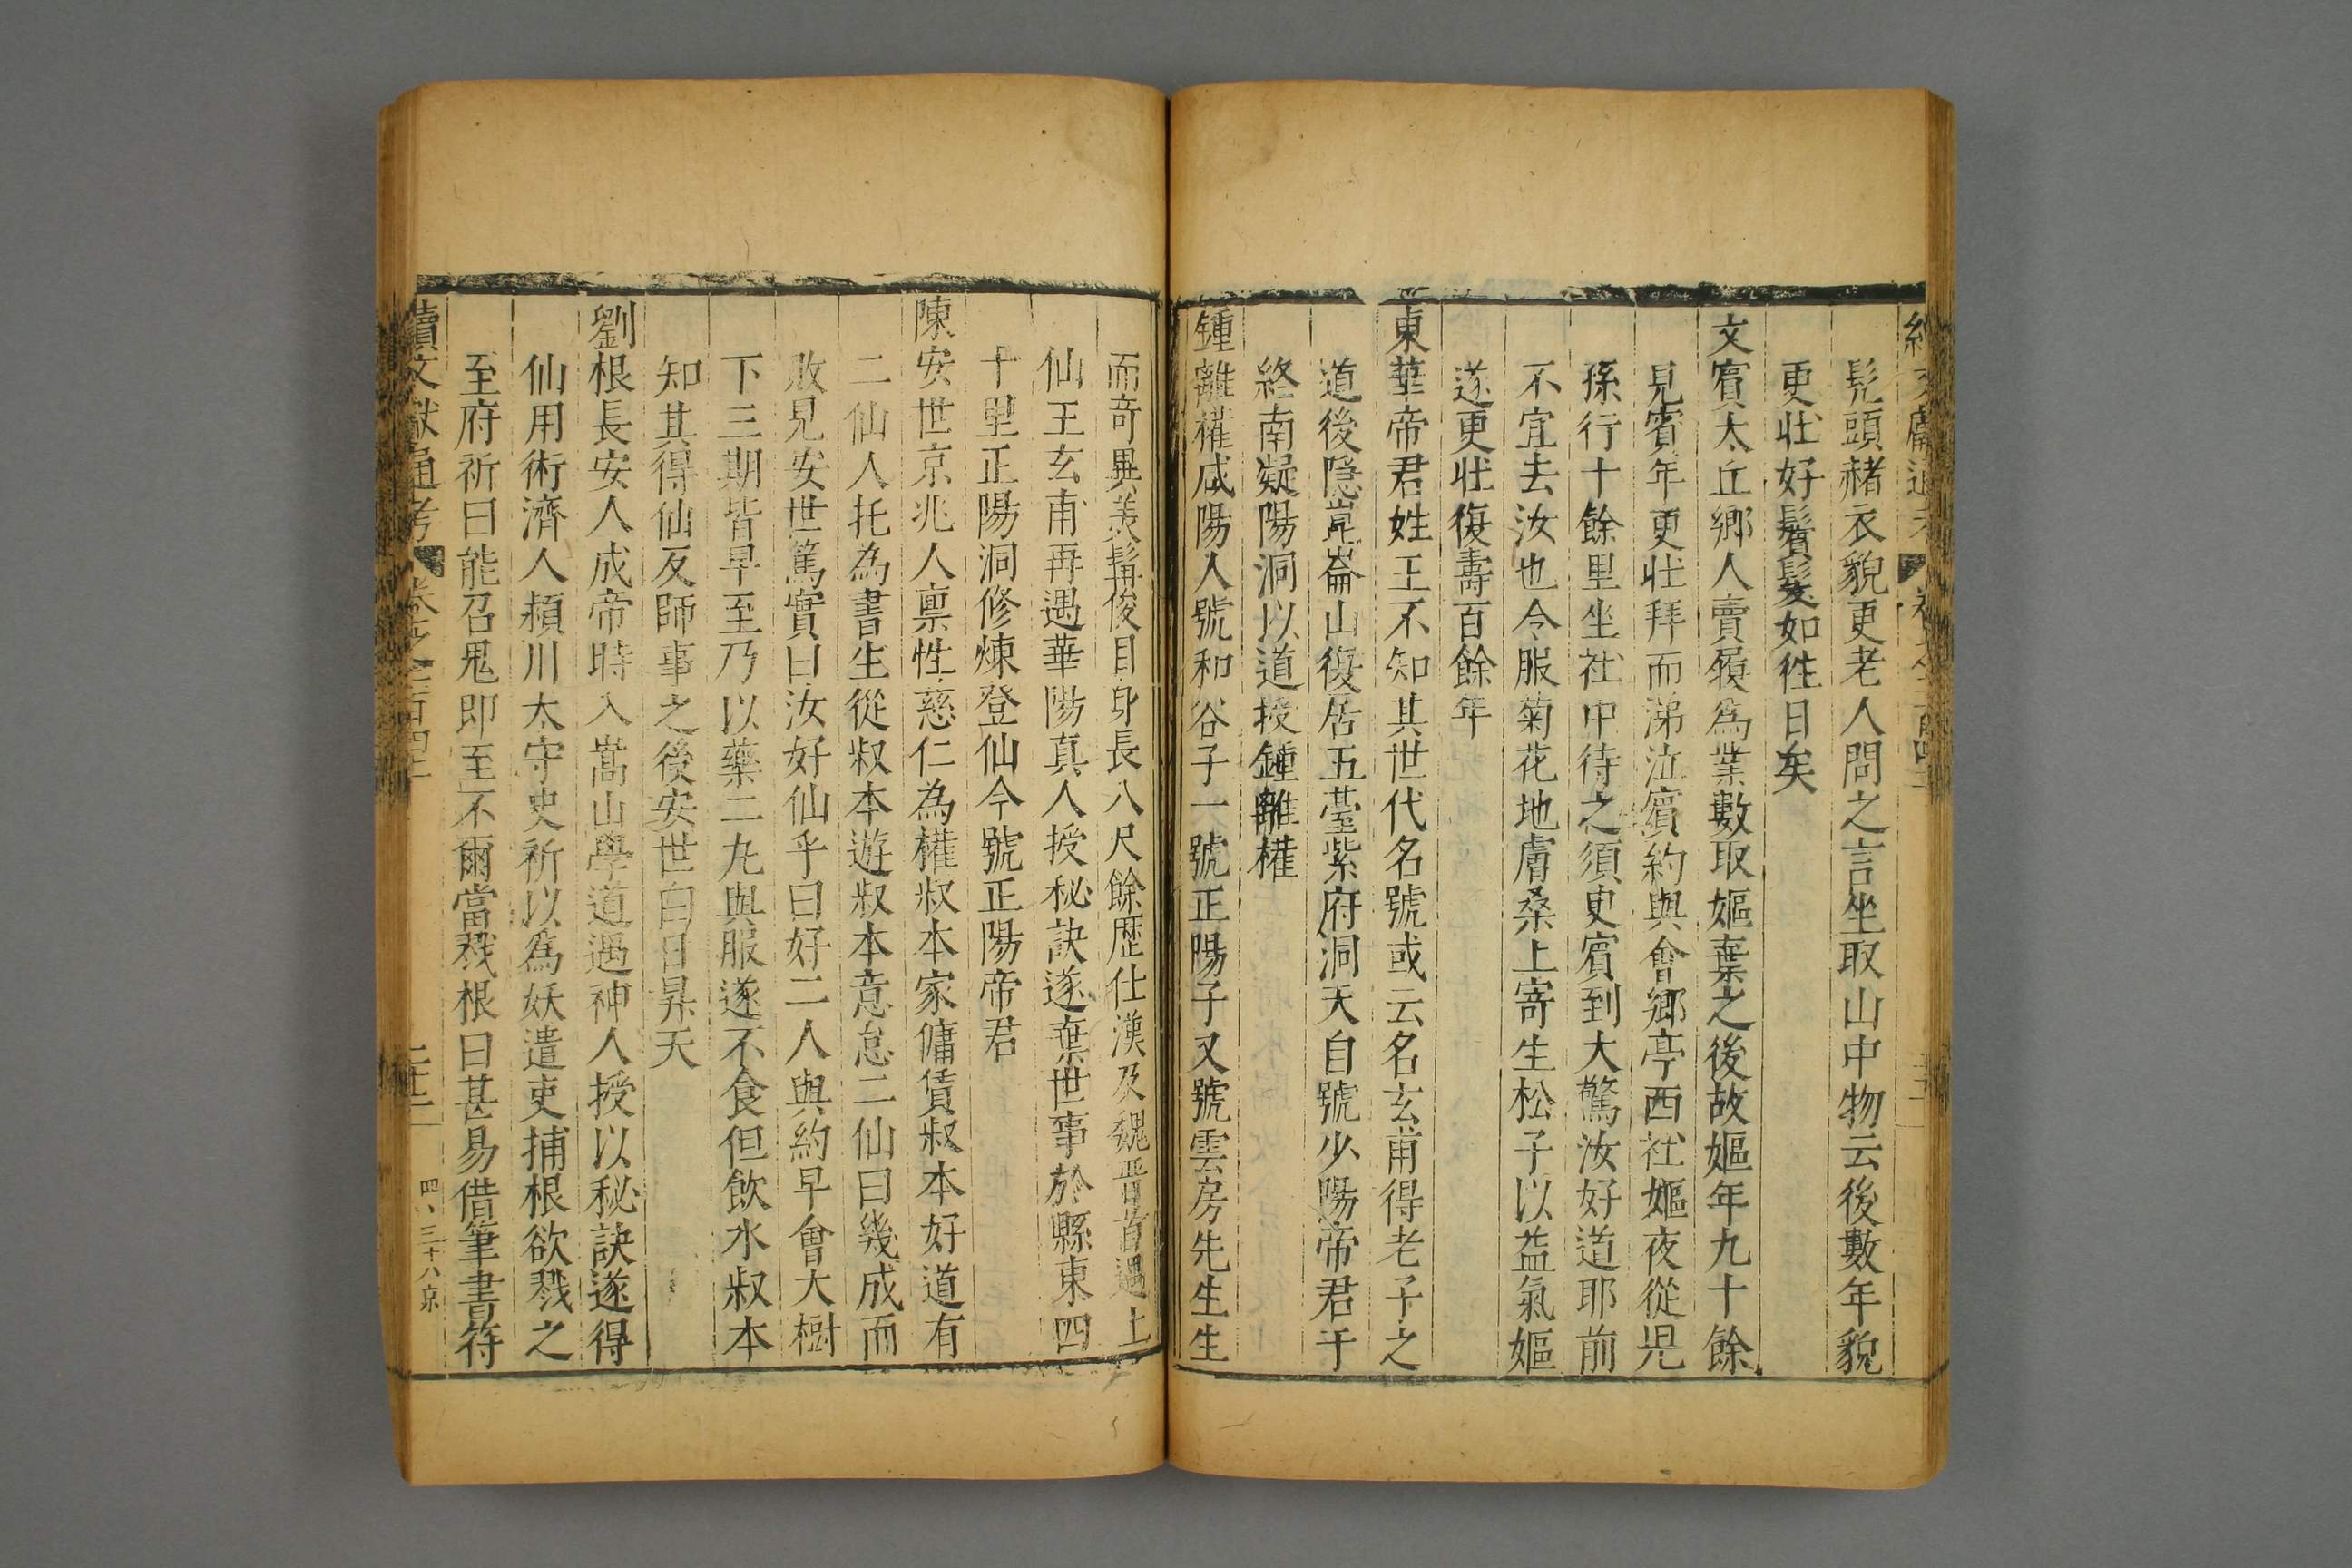 髠頭赭衣貌更老人問之言坐取山中物云後數年貌
更壯好鬚髮如徃日矣
文賔太丘鄉人賣屩爲業數取嫗棄之後故嫗年九十餘
見賔年更壯拜而涕泣賔約與會鄉亭西社嫗夜從児
孫行十餘里坐社中待之須臾賔到大驚汝好道耶前
不宜去汝也令服菊花地膚桑上寄生松子以益氣嫗
遂更壯復壽百餘年
東華帝君姓王不知其世代名號或云名玄甫得老子之
道後隱崑崙山復居五臺紫府洞天自號少陽帝君于
終南凝陽洞以道授鍾離權
鍾離權咸陽人號和谷子一號正陽子又號雲房先生生
而奇異美髯俊目身長八尺餘歷仕漢及魏晋首遇上
仙王玄甫再遇華陽真人授秘訣遂棄世事於縣東四
十里正陽洞修煉登仙今號正陽帝君
陳安世京兆人禀性慈仁為權叔本家傭賃叔本好道有
二仙人托為書生從叔本遊叔本意怠二仙曰幾成而
敗見安世篤實曰汝好仙乎曰好二人與約早會大樹
下三期皆早至乃以藥二丸與服遂不食但飲水叔本
知其得仙反師事之後安世白日昇天
劉根長安人成帝時入嵩山學道遇神人授以秘訣遂得
仙用術濟人潁川太守史祈以爲妖遣吏捕根欲戮之
至府祈曰能召鬼即至不爾當戮根曰甚易借筆書符
續文獻通考 卷之二百四十二 二十二 四、三十八京